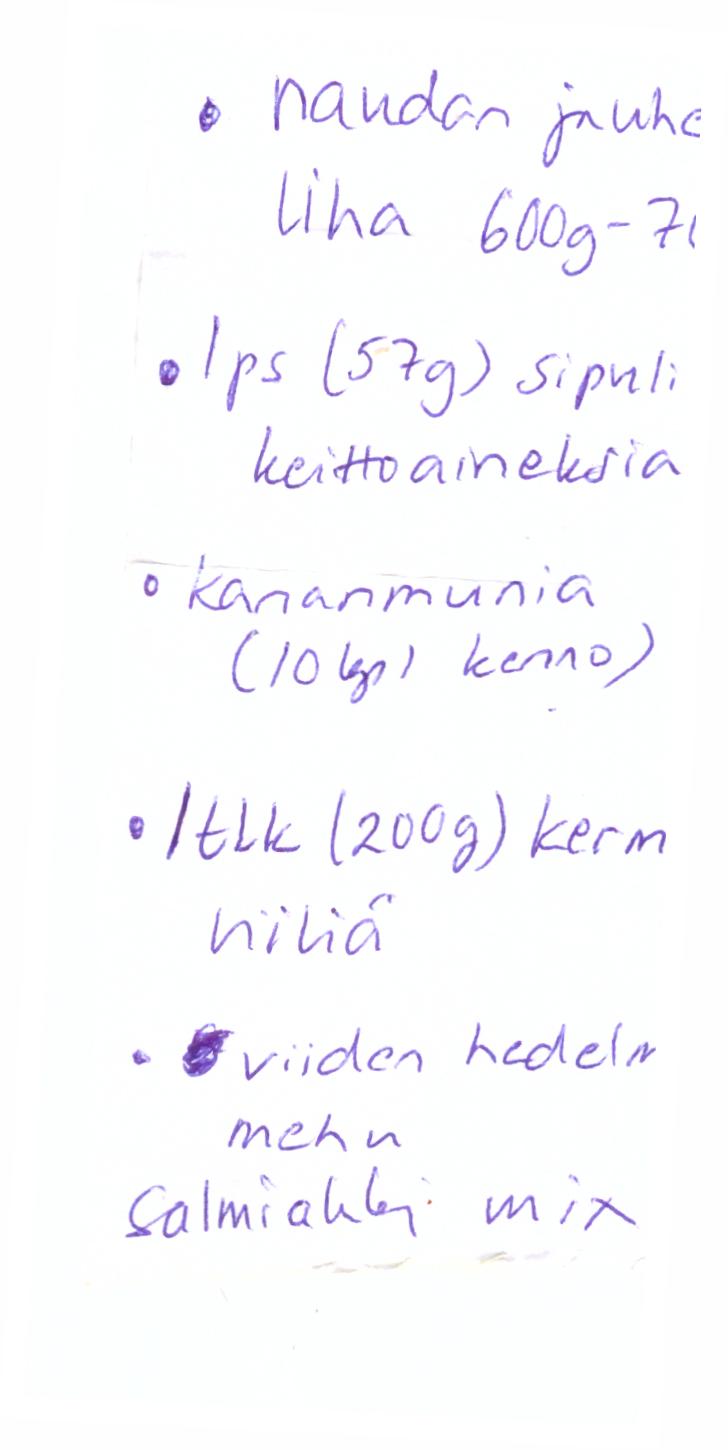 • naudan jauhe
liha 600g-7
• 1ps (57g) sipuli
keittoaineksia
• kananmunia
(10kpl kenno)
• 1tlk (200g) kerm
viiliä
• viiden hedelm
mehu
Salmiakki mix